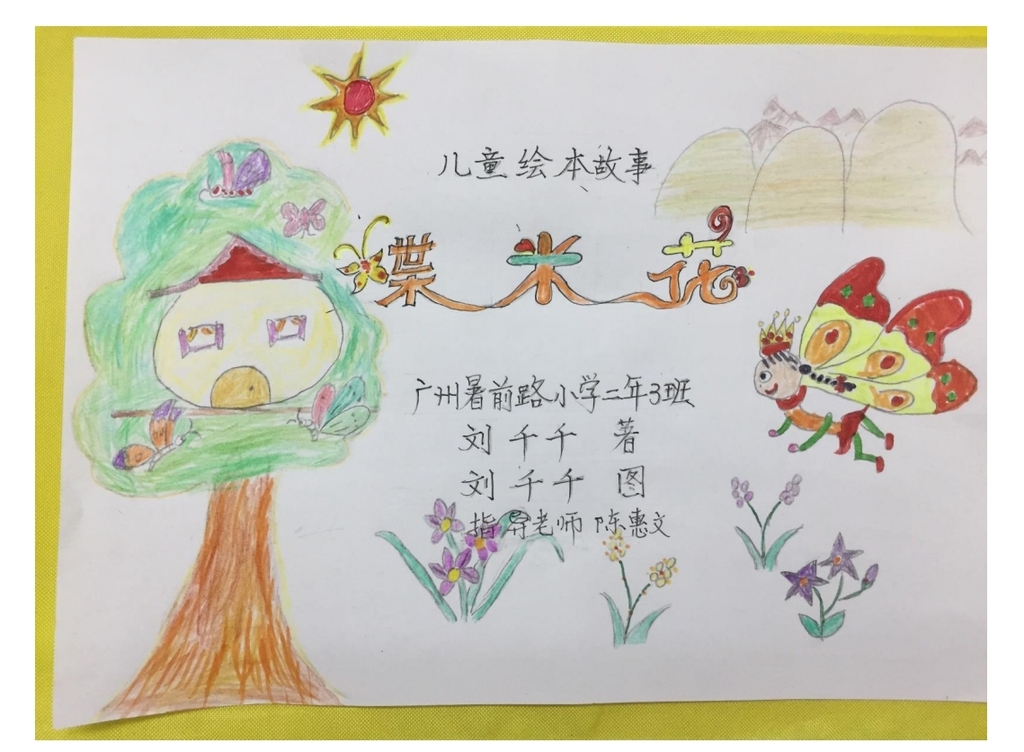 儿童绘本故事
蝶米花
广州署前路小学二年3班
刘千千 著
刘千千 图
指导老师 陈惠文